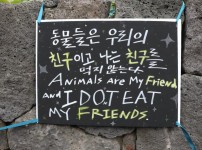 동물들은 우리의
친구이고 나는 친구를
먹지 않는다
Animals are My Friend
and I DO'T EAT
MY FRIENDS.